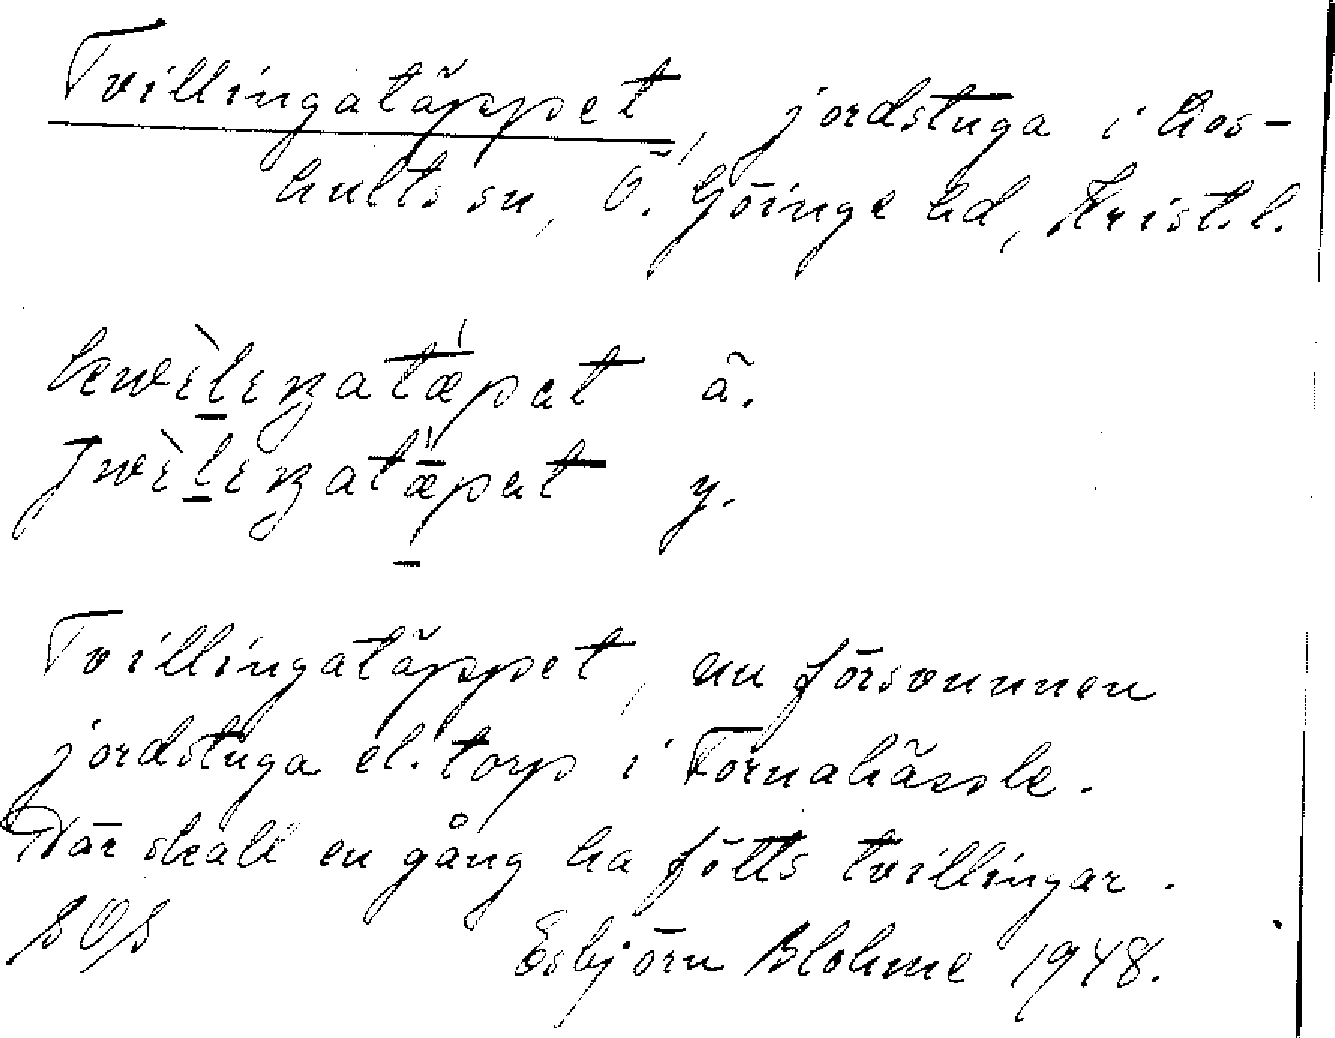 Tvillingatäppet, jordstuga i Los-
hults sn, Ö. Göinge hd, Krist. l.
ä.
y.
Tvillingatäppet, en försvunnen
jordstuga el. torp i Tornahässle.
Där skall en gång ha fötts tvillingar.
SOS Esbjörn Blohmé 1948.